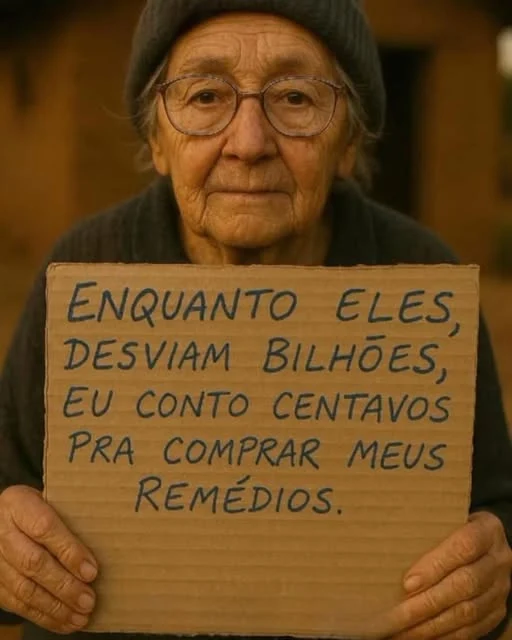 ENQUANTO ELES,
DESVIAM BILHÕES,
EU CONTO CENTAVOS
PRA COMPRAR MEUS
REMÉDIOS.